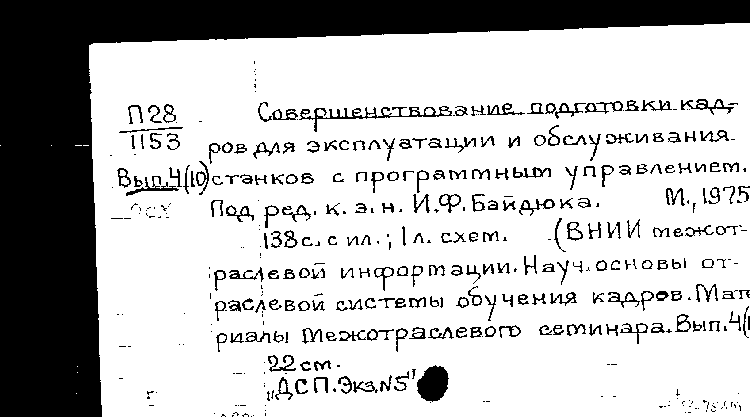 П28 Совершенствование подготовки кад-
1153 ров для эксплуатации и обслуживания
Вып.4(10) станков с программным управлением.
Под ред. к. э. н. И.Ф. Байдюка. М., 1975
138 с. с ил.; 1 л. схем. (ВНИИ межот-
раслевой информации. Науч. основы от-
раслевой системы обучения кадров. Мате
риалы Межотраслевого семинара. Вып. 4(1
22 см.
"ДСП. Экз. N5"